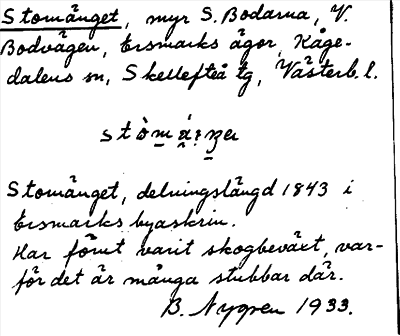 Stomänget, myr S. Bodarna, V.
Bodvägen, Ersmarks ägor, Kåge-
dalens sn, Skellefteå tg, Västerb. l.
Stomänget, delningslängd 1843 i
Ersmarks byaskrin.
Har förut varit skogbeväxt, var-
för det är många stubbar där.
B. Nygren 1933.